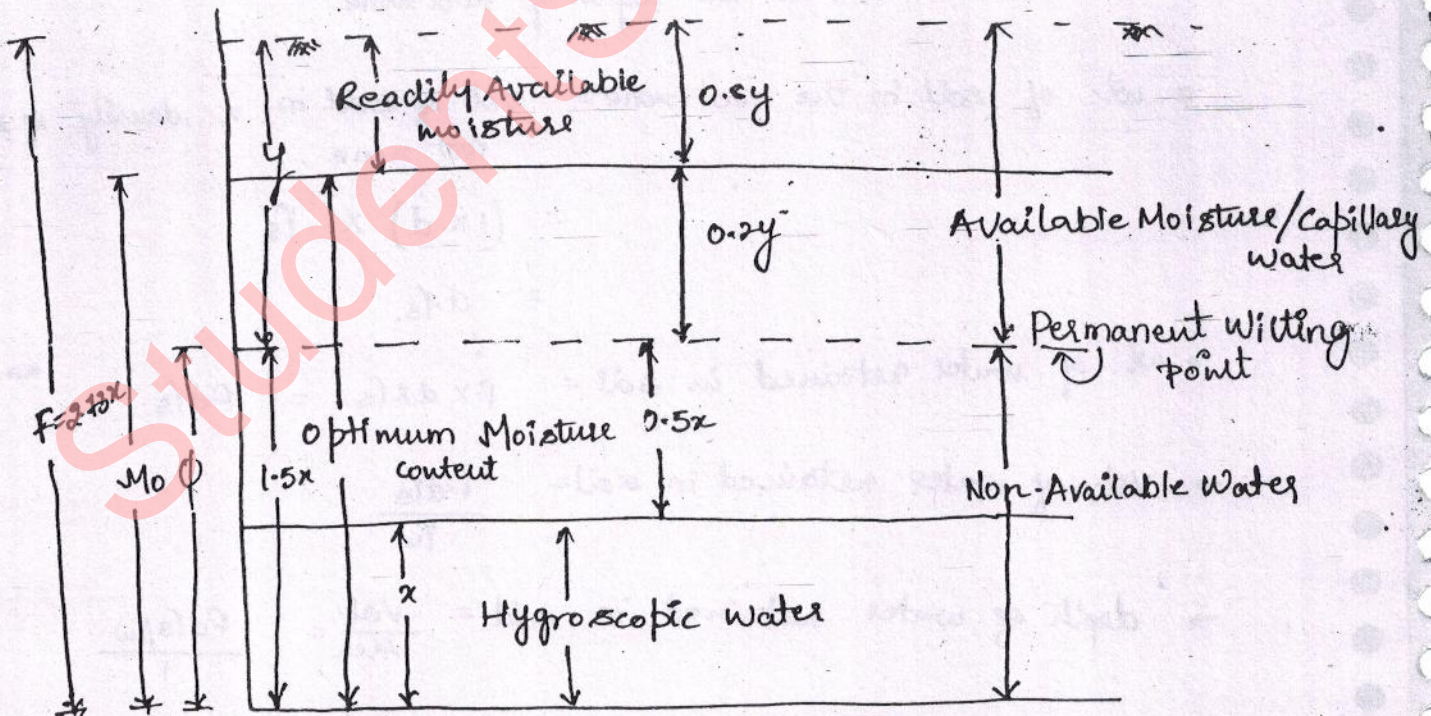 Readily Available
moisture
0.8y
y
0.2y
Available Moisture/Capillary
water
Permanent Wilting
point
Mo
ϕ
1.5x
Optimum Moisture
content
0.5x
Non-Available Water
x
Hygroscopic water
Students
depth of water